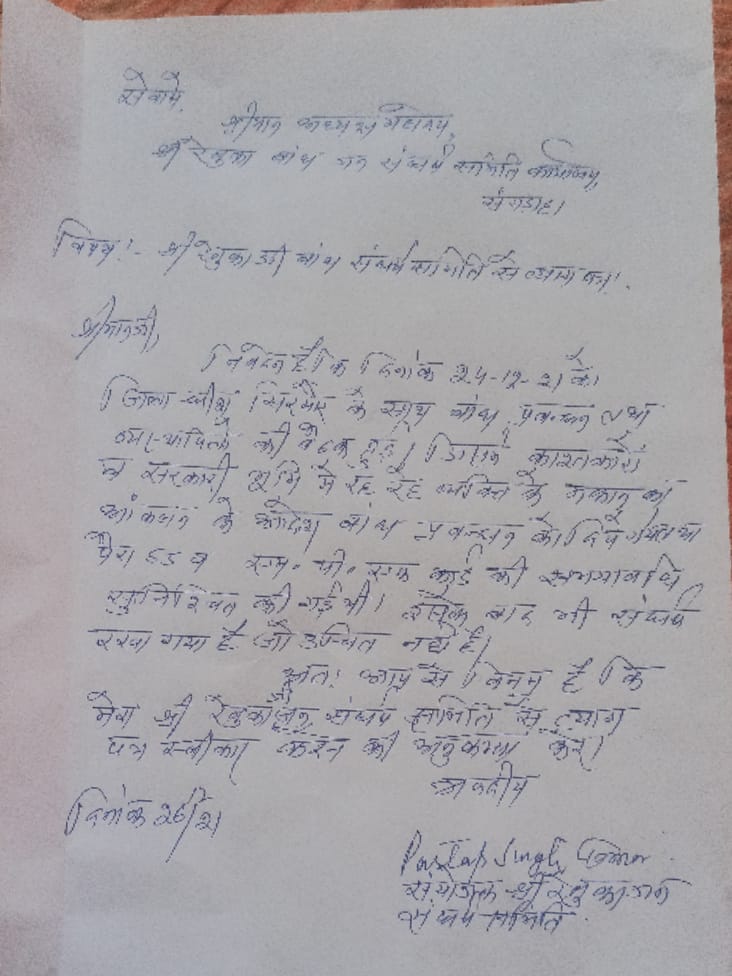 सेवामे,
श्रीमान अध्यक्ष महोदय,
श्री रेणुका बांध जन संघर्ष समिति कार्यालय,
संगड़ाह।
विषय:- श्री रेणुका जी बांध संघर्ष समिति से त्याग पत्र।
श्रीमानजी,
निवेदन है कि दिनांक 24-12-21 को
जिला धीश सिरमौर के साथ बांध प्रबन्धन तथा
विस्थापितो की बैठक हुई। जिसमें काश्तकारों
व सरकारी भूमि में रह रहे व्यक्ति के मकान का
आंकलन के आदेश बांध प्रबन्धन को दिये
पैरा व एम. पी. एफ कार्ड की समयावधि
सुनिश्चित की गई थी। इसके बाद भी संघर्ष
रखा गया है जो उचित नहीं है।
अतः आप से विनम्र है कि
मेरा श्री रेणुका जी जन संघर्ष समिति से त्याग
पत्र स्वीकार करने की अनुकम्पा करें।
भवदीय
दिनांक 26/21
Partap Singh Tomar
संयोजक श्री रेणुका जन
संघर्ष समिति